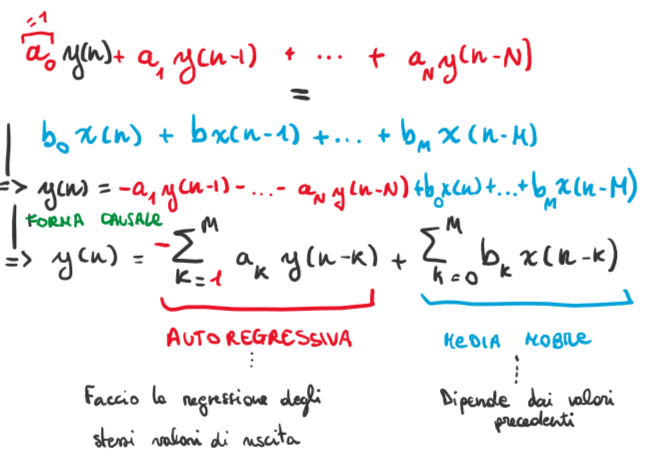 =1
a₀ y(n) + a₁ y(n-1) + ... + a_N y(n-N)
=
b₀ x(n) + bx(n-1) + ... + b_M x(n-M)
=> y(n) = -a₁ y(n-1) - ... - a_N y(n-N) + b₀x(n) + ... + b_M x(n-M)
FORMA CAUSALE
=> y(n) = -∑_{k=1}^{M} a_k y(n-k) + ∑_{k=0}^{M} b_k x(n-k)
AUTOREGRESSIVA MEDIA MOBILE
Faccio la regressione degli
stessi valori di uscita
Dipende dai valori
precedenti